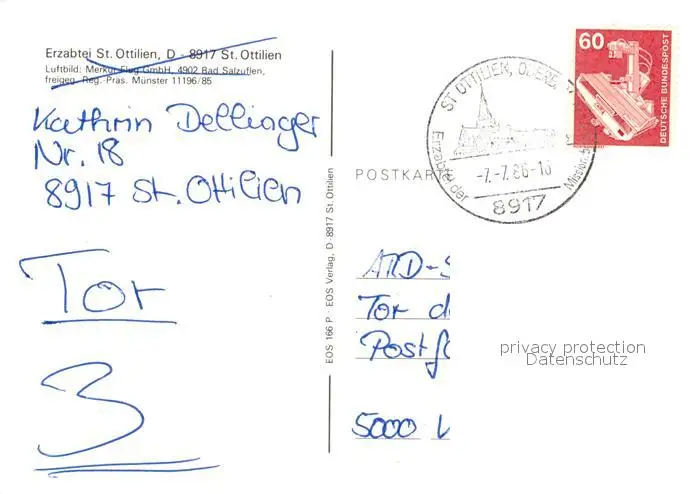 Erzabtei St. Ottilien, D - 8917 St. Ottilien
Luftbild: Merkur Flug GmbH, 4902 Bad Salzuflen,
freigeg. Reg. Präs. Münster 11196/85
Kathrin Dellinger
Nr. 18
8917 St. Ottilien
Tor
3
EOS 166 P · EOS Verlag, D-8917 St. Ottilien
POSTKARTE
60
DEUTSCHE BUNDESPOST
ST. OTTILIEN, OBERB
Erzabtei der
Mission
-7.-7.86-16
8917
ARD-S
Tor d
Postf
5000
privacy protection
Datenschutz